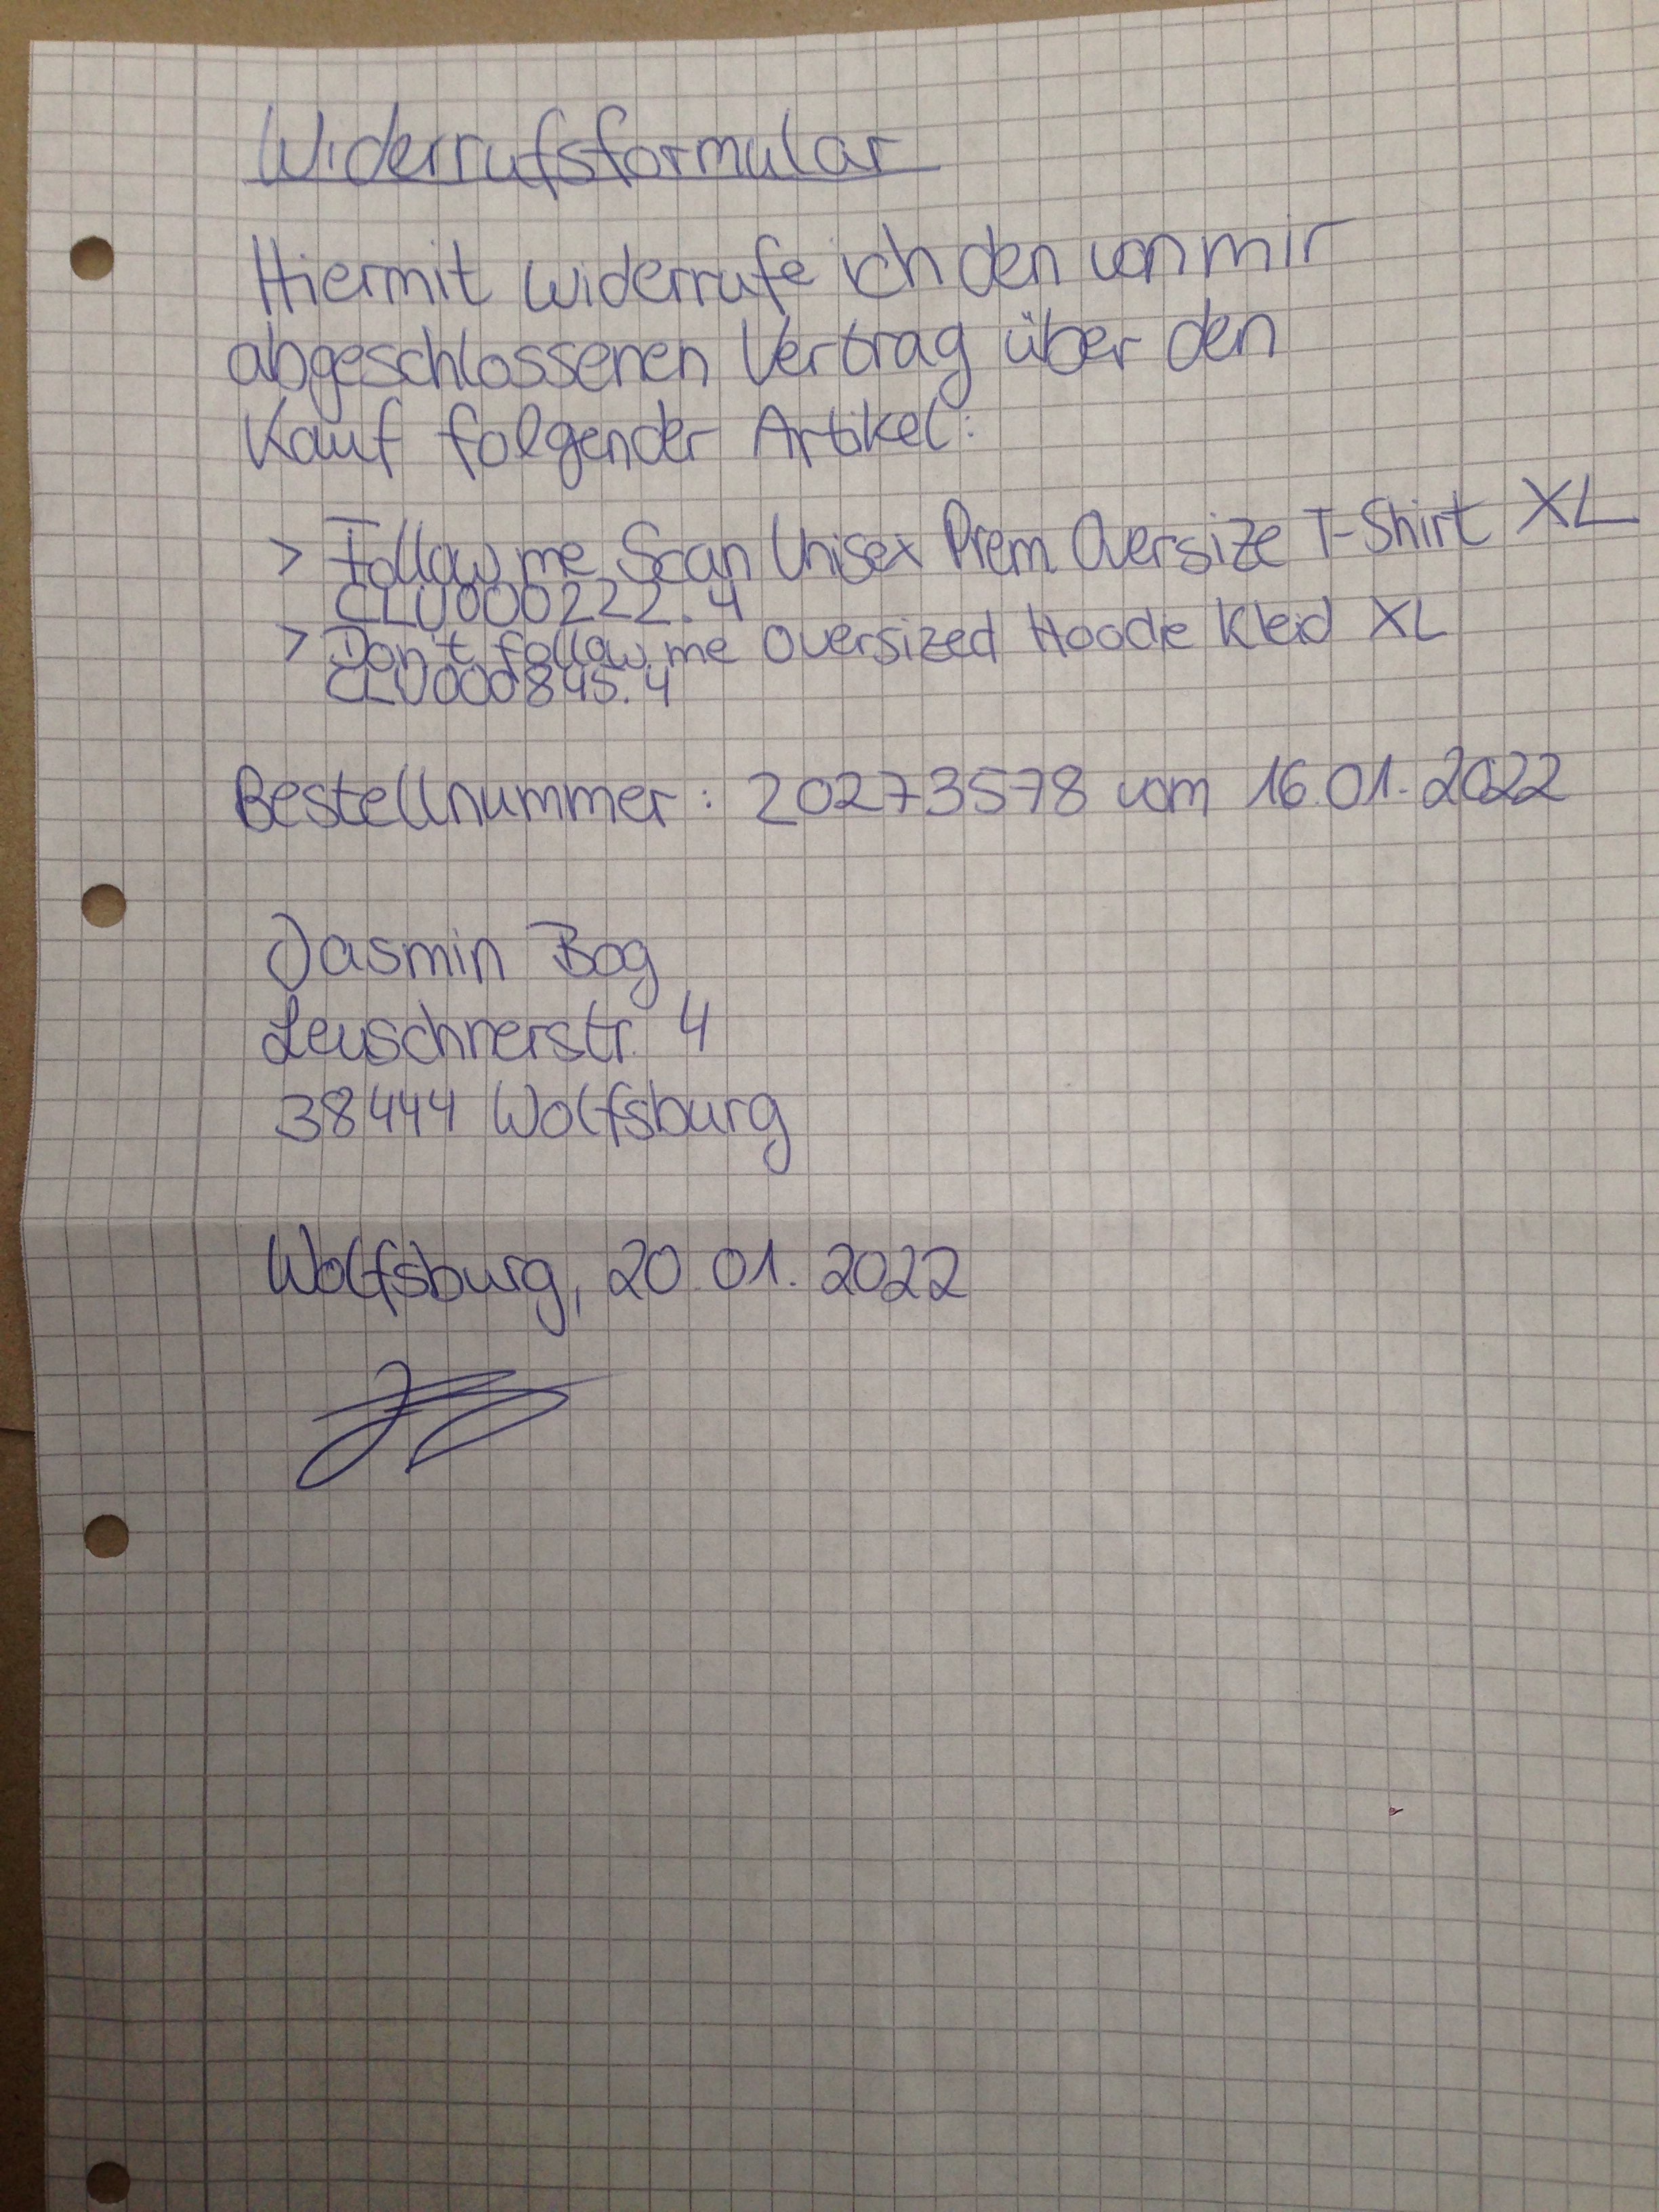 Widerrufsformular
Hiermit widerrufe ich den von mir
abgeschlossenen Vertrag über den
Kauf folgender Artikel:
> Follow me Scan Unisex Prem Oversize T-Shirt XL
CLU000222.4
> Don't follow me Oversized Hoodie Kleid XL
CLU000845.4
Bestellnummer: 20273578 vom 16.01.2022
Jasmin Bog
Leuschnerstr. 4
38444 Wolfsburg
Wolfsburg, 20.01.2022